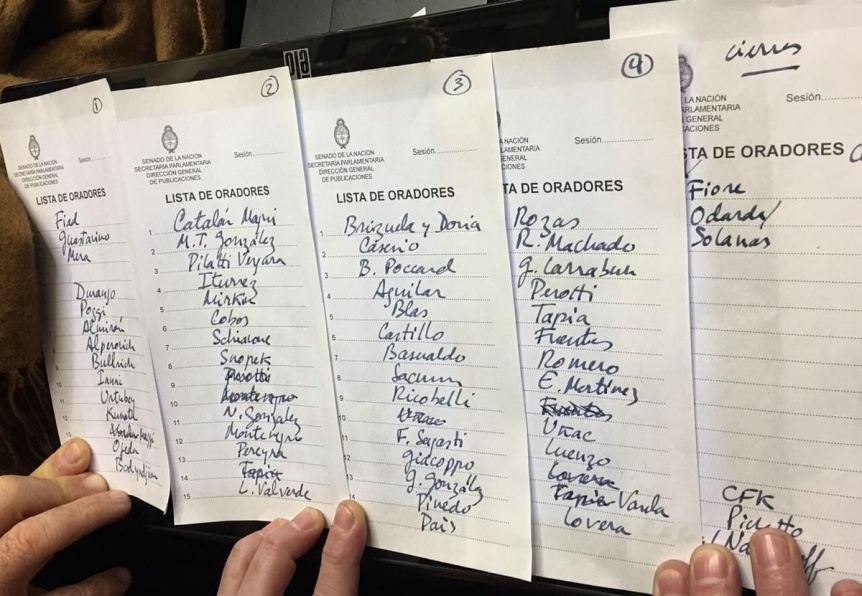 ①
SENADO DE LA NACIÓN
SECRETARÍA PARLAMENTARIA
DIRECCIÓN GENERAL
DE PUBLICACIONES
Sesión
LISTA DE ORADORES
Fiad
Guastavino
Mera
Durango
Poggi
Almirón
Alperovich
Bullrich
Ianni
Urtubey
Kunath
Ojeda
Bodyadjian
②
SENADO DE LA NACIÓN
SECRETARÍA PARLAMENTARIA
DIRECCIÓN GENERAL
DE PUBLICACIONES
Sesión
LISTA DE ORADORES
1 Catalán Magni
2 M.T. González
3 Pilatti Vergara
4 Iturrez
5 Mirkin
6 Cobos
7 Schiavone
8 Snopek
9 Perotti
10 Montenegro
11 N. González
12 Montenegro
13 Pereyra
14 Tapia
15 L. Valverde
③
SENADO DE LA NACIÓN
SECRETARÍA PARLAMENTARIA
DIRECCIÓN GENERAL
DE PUBLICACIONES
Sesión
LISTA DE ORADORES
1 Brizuela y Doria
2 Caserio
3 B. Poccard
4 Aguilar
5 Blas
6 Castillo
7 Basualdo
8 Sacnun
9 Ricobelli
10 Uñac
11 F. Sagasti
12 Giacoppo
13 G. González
14 Pinedo
Pais
④
NACIÓN
RLAMENTARIA
ENERAL
CACIONES
Sesión
TA DE ORADORES
Rozas
R. Machado
G. Larraburu
Perotti
Tapia
Fuentes
Romero
E. Martínez
Fuentes
Uñac
Luenzo
Lovera
Tapia Varela
Lovera
cierres
LA NACIÓN
ARLAMENTARIA
GENERAL
CACIONES
Sesión
STA DE ORADORES
Fiore
Odarda
Solanas
CFK
Pichetto